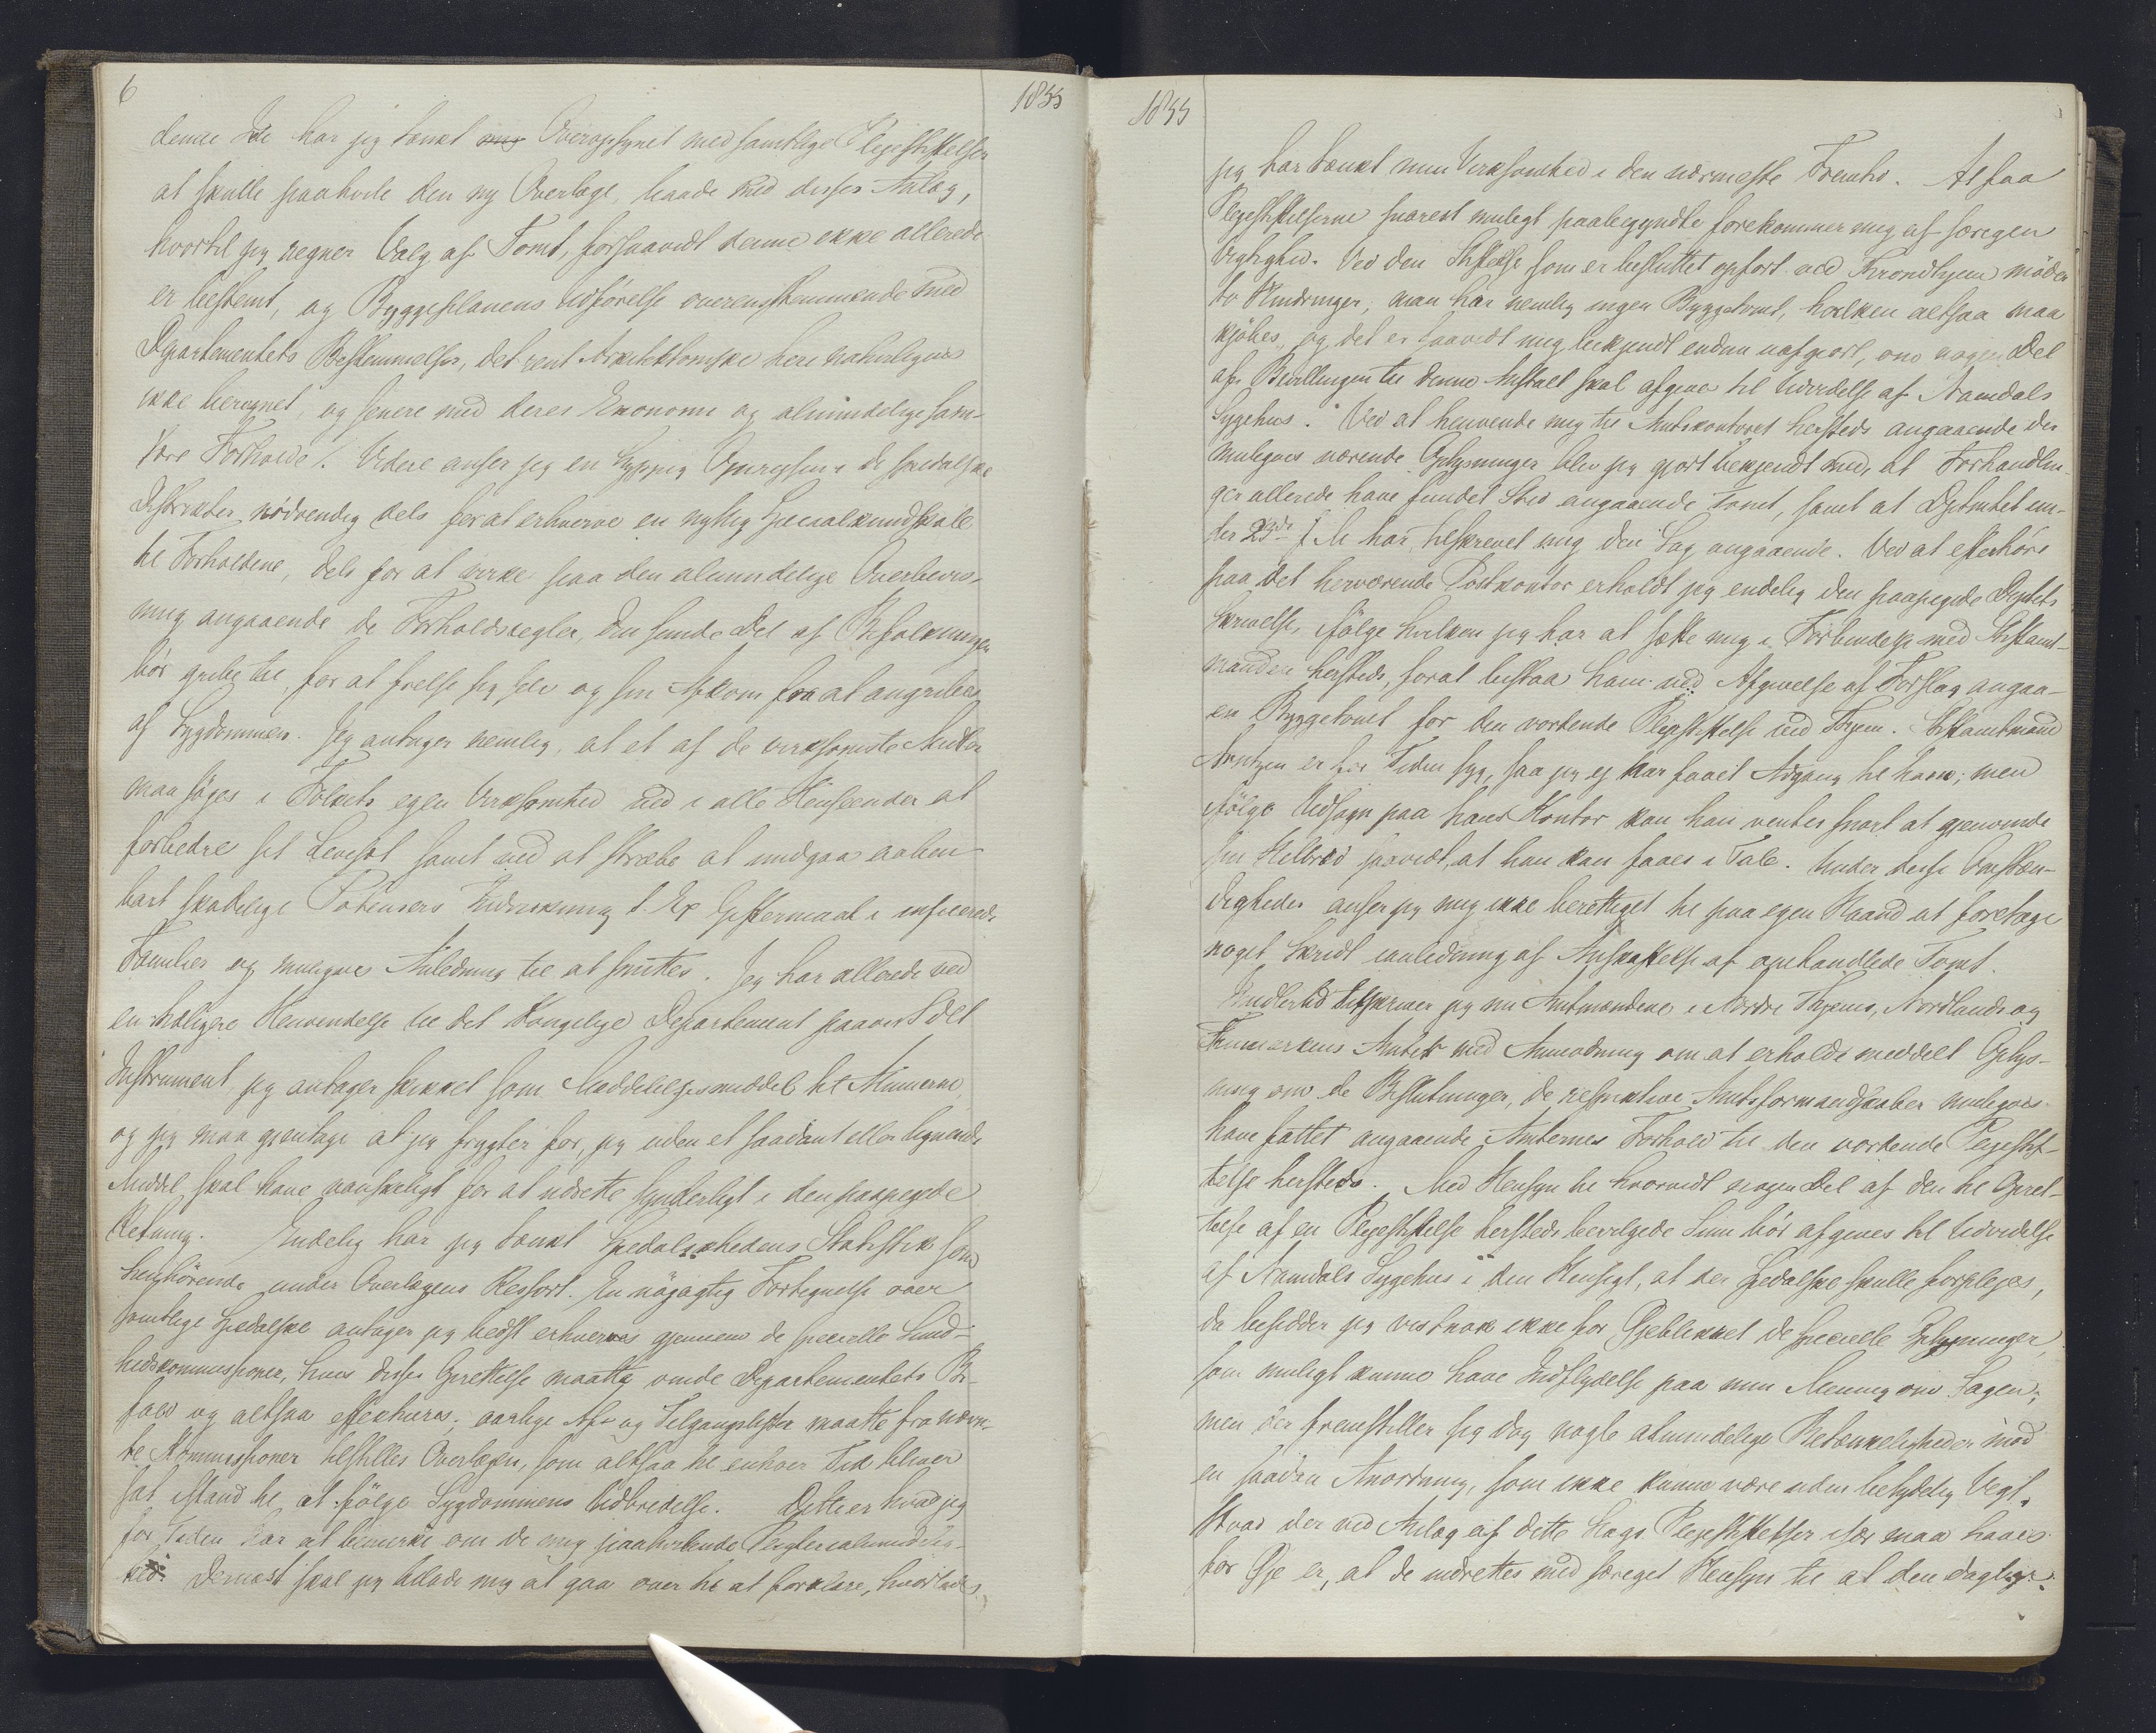 6
1855
denne Ide har jeg tænkt mig Overopsynet med samtlige Plejestiftelser
at skulle paahvile den ny Overlæge, baade ved disses Anlæg,
hvortil jeg regner Valg af Tomt, forsaavidt denne ikke allerede
er bestemt, og Byggeplanens Udførelse overensstemmende med
Departementets Bestemmelser, det rent Arkitektoniske heri naturligvis
ikke beregnet, og senere med deres Økonomi og almindelige sani-
tære Forholde/. Videre anser jeg en hyppig Omrejsen i de spedalske
Distrikter nødvendig dels for at erhverve en nyttig Specialkundskab
til Forholdene, dels for at virke paa den almindelige Overbevis-
ning angaaende de Forholdsregler, den sunde Del af Befolkningen
bør gribe til, for at frelse sig selv og sin Afkom fra at angribes
af Sygdommen. Jeg antager nemlig, at et af de virksomste Midler
maa søges i Folkets egen Virksomhed ved i alle Henseender at
forbedre sit Levesæt samt ved at stræbe at undgaa aaben-
bart skadelige Potensers Indvirkning t. Ex Giftermaal i inficerede
Familier og muligvis Anledning til at smittes. Jeg har allerede ved
en tidligere Henvendelse til det Kongelige Departement paavist det
Instrument jeg antager passet som Meddelelsesmiddel til Almuerne,
og jeg maa gjentage at jeg frygter for, jeg uden et saadant eller lignende
Middel, skal have vanskeligt for at udrette synderligt i den paapegede
Retning. Endelig har jeg tænkt Spedalskhedens Statistik som
henhørende under Overlægens Ressort. En nøjagtig Fortegnelse over
samtlige Spedalske antager jeg bedst erhverves gjennem de specielle Sund-
hedskommissioner, hvis disses Oprettelse maatte vinde Departementets Bi-
fald og altsaa effektueres; aarlige Af- og Tilgangslister maatte fra nævn-
te Kommissioner tilstilles Overlægen, som altsaa til enhver Tid bliver
sat istand til at følge Sygdommens Udbredelse. Dette er hvad jeg
for Tiden har at bemærke om de mig paahvilende Pligter i almindelig-
hed. Dernæst skal jeg tillade mig at gaa over til at forklare, hvorledes
1855
jeg har tænkt min Virksomhed i den nærmeste Fremtid. At faa
Plejestiftelserne snarest muligt paabegyndte forekommer mig af særegen
Vigtighed. Ved den Stiftelse som er besluttet opført ved Throndhjem møder
to Hindringer, man har nemlig ingen Byggetomt, hvilken altsaa maa
kjøbes, og det er saavidt mig bekjendt endnu uafgjort, om nogen Del
af Bevillingen til denne Anstalt skal afgives til Udvidelse af Namdals
Sygehus. Ved at henvende mig til Amtskontoret hersteds angaaende der
muligvis værende Oplysninger blev jeg gjort bekjendt med, at Forhandlin-
ger allerede have fundet Sted angaaende Tomt, samt at Dptmtet un-
der 23de f. M. har tilskrevet mig den Sag angaaende. Ved at efterhøre
paa det herværende Postkontor erholdt jeg endelig den paapegede Deptets
Skrivelse, ifølge hvilken jeg har at sætte mig i Forbindelse med Stiftamt-
manden hersteds, for at bistaa ham ved Afgivelse af Forslag angaa-
en Byggetomt for den vordende Plejestiftelse ved Thjem. Stiftamtmand
Arntzen er for Tiden syg, saa jeg ej har faaet Adgang til ham; men
ifølge Udsagn paa hans Kontor kan han ventes snart at gjenvinde
sin Helbred saavidt, at han kan faaes i Tale. Under disse Omstæn-
digheder anser jeg mig ikke berettiget til paa egen Haand at foretage
noget Skridt i anledning af Anskaffelse af omhandlede Tomt.
Imidlertid tilskriver jeg nu Amtmændene i Nordre Thjems, Nordlands og
Finmarkens Amter med Anmodning om at erholde meddelt Oplys-
ning om de Beslutninger, de respektive Amtsformandskaber muligvis
have fattet angaaende Amternes Forhold til den vordende Plejestif-
telse hersteds. Med Hensyn til hvorvidt nogen Del af den til Opret-
telse af en Plejestiftelse hersteds bevilgede Sum bør afgives til Udvidelse
af Namdals Sygehus i den Hensigt, at der Spedalske skulle forplejes,
da besidder jeg vistnok ikke for Øjeblikket de specielle Oplysninger,
som muligt kunne have Indflydelse paa min Mening om Sagen;
men der fremstiller sig dog nogle almindelige Betænkeligheder mod
en saadan Anordning, som ikke kunne være uden betydelig Vegt.
Hvad der ved Anlæg af dette Slags Plejestiftelser især maa haves
for Øje er, at de indrettes med særeget Hensyn til at den daglige